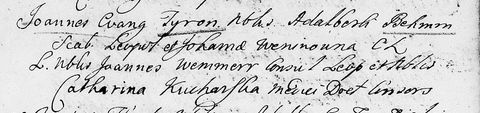 Joannes Evang Tyron. Nblis. Adalberti Behmm
Scab. Leopol et Johanæ Wennouna CL
L. Nblis Joannes Wemmerr Consul Leop et Nblis
Catharina Kucharska Medici Doct Consors